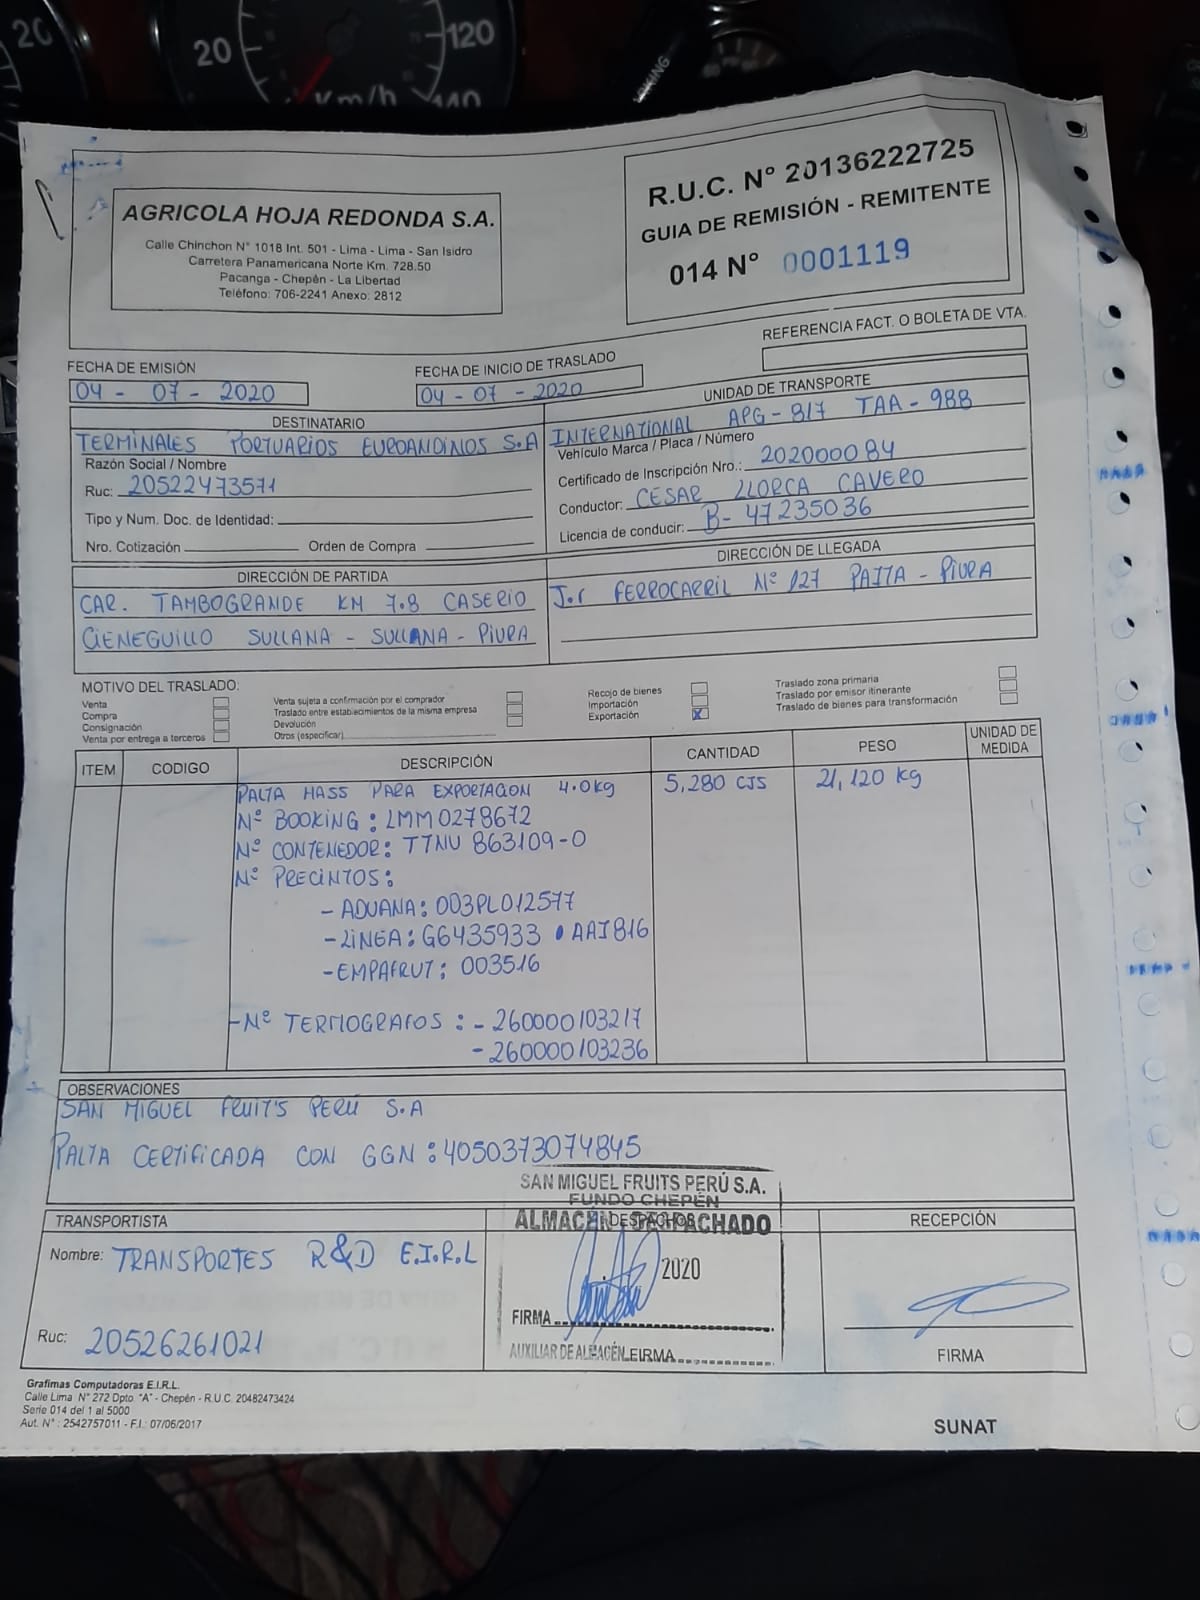 20
20
120
140
km/h
AGRICOLA HOJA REDONDA S.A.
Calle Chinchon N° 1018 Int. 501 - Lima - Lima - San Isidro
Carretera Panamericana Norte Km. 728.50
Pacanga - Chepén - La Libertad
Teléfono: 706-2241 Anexo: 2812
R.U.C. N° 20136222725
GUIA DE REMISIÓN - REMITENTE
014 N° 0001119
REFERENCIA FACT. O BOLETA DE VTA.
FECHA DE EMISIÓN
04 - 07 - 2020
FECHA DE INICIO DE TRASLADO
04 - 07 - 2020
DESTINATARIO
TERMINALES PORTUARIOS EUROANDINOS S.A
Razón Social / Nombre
Ruc: 20522473571
Tipo y Num. Doc. de Identidad:
Nro. Cotización Orden de Compra
UNIDAD DE TRANSPORTE
INTERNATIONAL APG-817 TAA-988
Vehículo Marca / Placa / Número
Certificado de Inscripción Nro.: 202000084
Conductor: CESAR LLORCA CAVERO
Licencia de conducir: B-47235036
DIRECCIÓN DE PARTIDA
CAR. TAMBOGRANDE KM 7.8 CASERIO
CIENEGUILLO SULLANA - SULLANA - PIURA
DIRECCIÓN DE LLEGADA
J.r FERROCARRIL N° 127 PAITA - PIURA
MOTIVO DEL TRASLADO:
Venta
Compra
Consignación
Venta por entrega a terceros
Venta sujeta a confirmación por el comprador
Traslado entre establecimientos de la misma empresa
Devolución
Otros (especificar)
Recojo de bienes
Importación
Exportación X
Traslado zona primaria
Traslado por emisor itinerante
Traslado de bienes para transformación
ITEM CODIGO DESCRIPCIÓN CANTIDAD PESO UNIDAD DE MEDIDA
PALTA HASS PARA EXPORTACION 4.0kg 5,280 CJS 21,120 kg
N° BOOKING: LMM0278672
N° CONTENEDOR: TTNU 863109-0
N° PRECINTOS:
- ADUANA: 003PL012577
- LINEA: G6435933 • AAI816
- EMPAFRUT: 003516
- N° TERMOGRAFOS: - 260000103217
- 260000103236
OBSERVACIONES
SAN MIGUEL FRUIT'S PERÚ S.A
PALTA CERTIFICADA CON GGN: 4050373074845
SAN MIGUEL FRUITS PERÚ S.A.
FUNDO CHEPÉN
ALMACÉN DESPACHADO
DESPACHOS
2020
FIRMA
AUXILIAR DE ALMACÉN FIRMA
TRANSPORTISTA
Nombre: TRANSPORTES R&D E.I.R.L
Ruc: 20526261021
RECEPCIÓN
FIRMA
Grafimas Computadoras E.I.R.L.
Calle Lima N° 272 Dpto "A" - Chepén - R.U.C. 20482473424
Serie 014 del 1 al 5000
Aut. N° : 2542757011 - F.I.: 07/06/2017
SUNAT